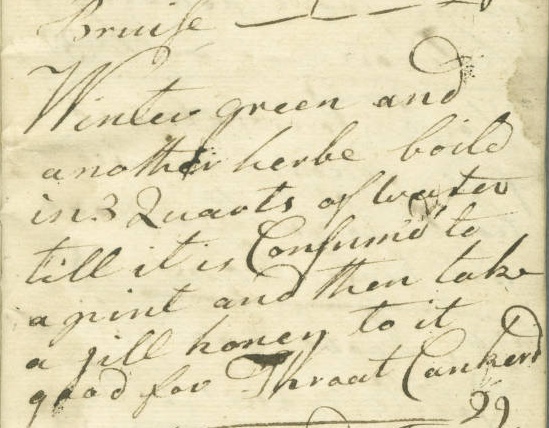 Bruise
Winter green and
another herbe boild
in 3 Quarts of Water
till it is Consumd to
a pint and then take
a jill honey to it
good for Throat Cankerd
29